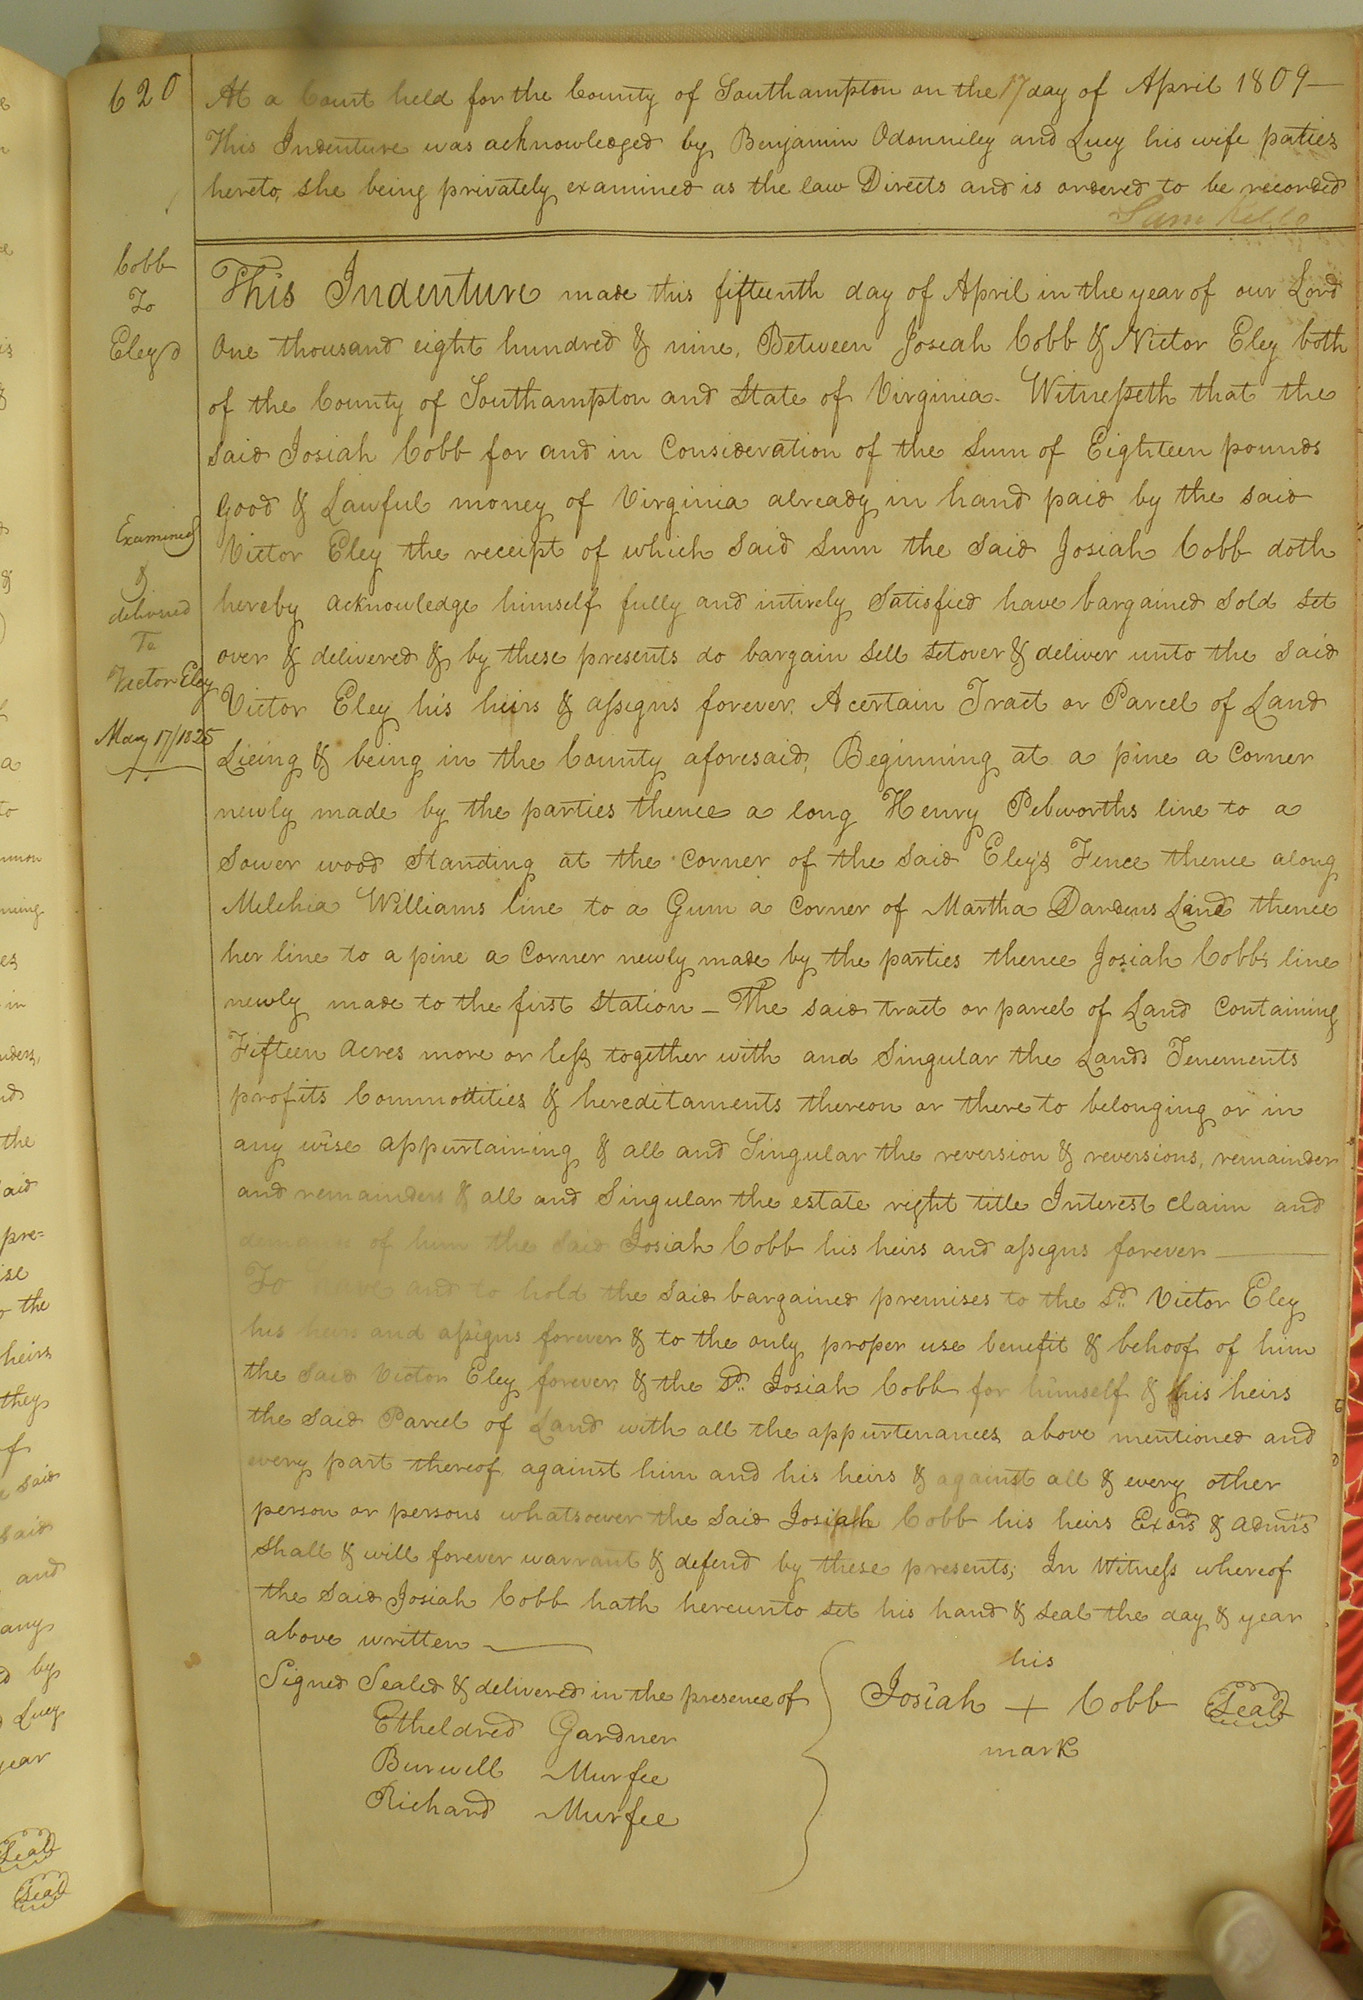 620
At a Court held for the County of Southampton on the 17 day of April 1809—
This Indenture was acknowledged by Benjamin Odonniley and Lucy his wife paties
hereto, she being privately examined as the law Directs and is ordered to be recorded
Sam Kello
Cobb
To
Eley
Examined
&
delivered
To
Victor Eley
May 17/1825
This Indenture made this fifteenth day of April in the year of our Lord
One thousand eight hundred & nine, Between Josiah Cobb & Victor Eley both
of the County of Southampton and State of Virginia. Witnesseth that the
said Josiah Cobb for and in Consideration of the Sum of Eighteen pounds
good & Lawful money of Virginia already in hand paid by the said
Victor Eley the receipt of which said sum the said Josiah Cobb doth
hereby acknowledge himself fully and intirely Satisfied have bargained Sold Set
over & delivered & by these presents do bargain Sell Setover & deliver unto the Said
Victor Eley his heirs & assigns forever. A certain Tract or Parcel of Land
Lieing & being in the County aforesaid, Beginning at a pine a Corner
newly made by the parties thence a long Henry Pebworths line to a
Sower wood Standing at the Corner of the Said Eley's Fence thence along
Milchia Williams line to a Gum a Corner of Martha Dardens Land thence
her line to a pine a Corner newly made by the parties thence Josiah Cobbs line
newly made to the first Station — The said tract or parcel of Land Containing
Fifteen acres more or less together with and Singular the Lands Tenements
profits Commodities & hereditaments thereon or there to belonging or in
any wise appurtaining & all and Singular the reversion & reversions, remainder
and remainders & all and Singular the estate right title Interest claim and
demand of him the Said Josiah Cobb his heirs and assigns forever
To have and to hold the Said bargained premises to the Sd. Victor Eley
his heirs and assigns forever & to the only proper use benefit & behoof of him
the Said Victor Eley forever & the Sd. Josiah Cobb for himself & his heirs
the Said Parcel of Land with all the appurtenances above mentioned and
every part thereof against him and his heirs & against all & every other
person or persons whatsoever the Said Josiah Cobb his heirs Exors & admrs
Shall & will forever warrant & defend by these presents; In Witness whereof
the Said Josiah Cobb hath hereunto Set his hand & Seal the day & year
above written
Signed Sealed & delivered in the presence of
Etheldred Gardner
Burwell Murfee
Richard Murfee
his
Josiah + Cobb Seal
mark